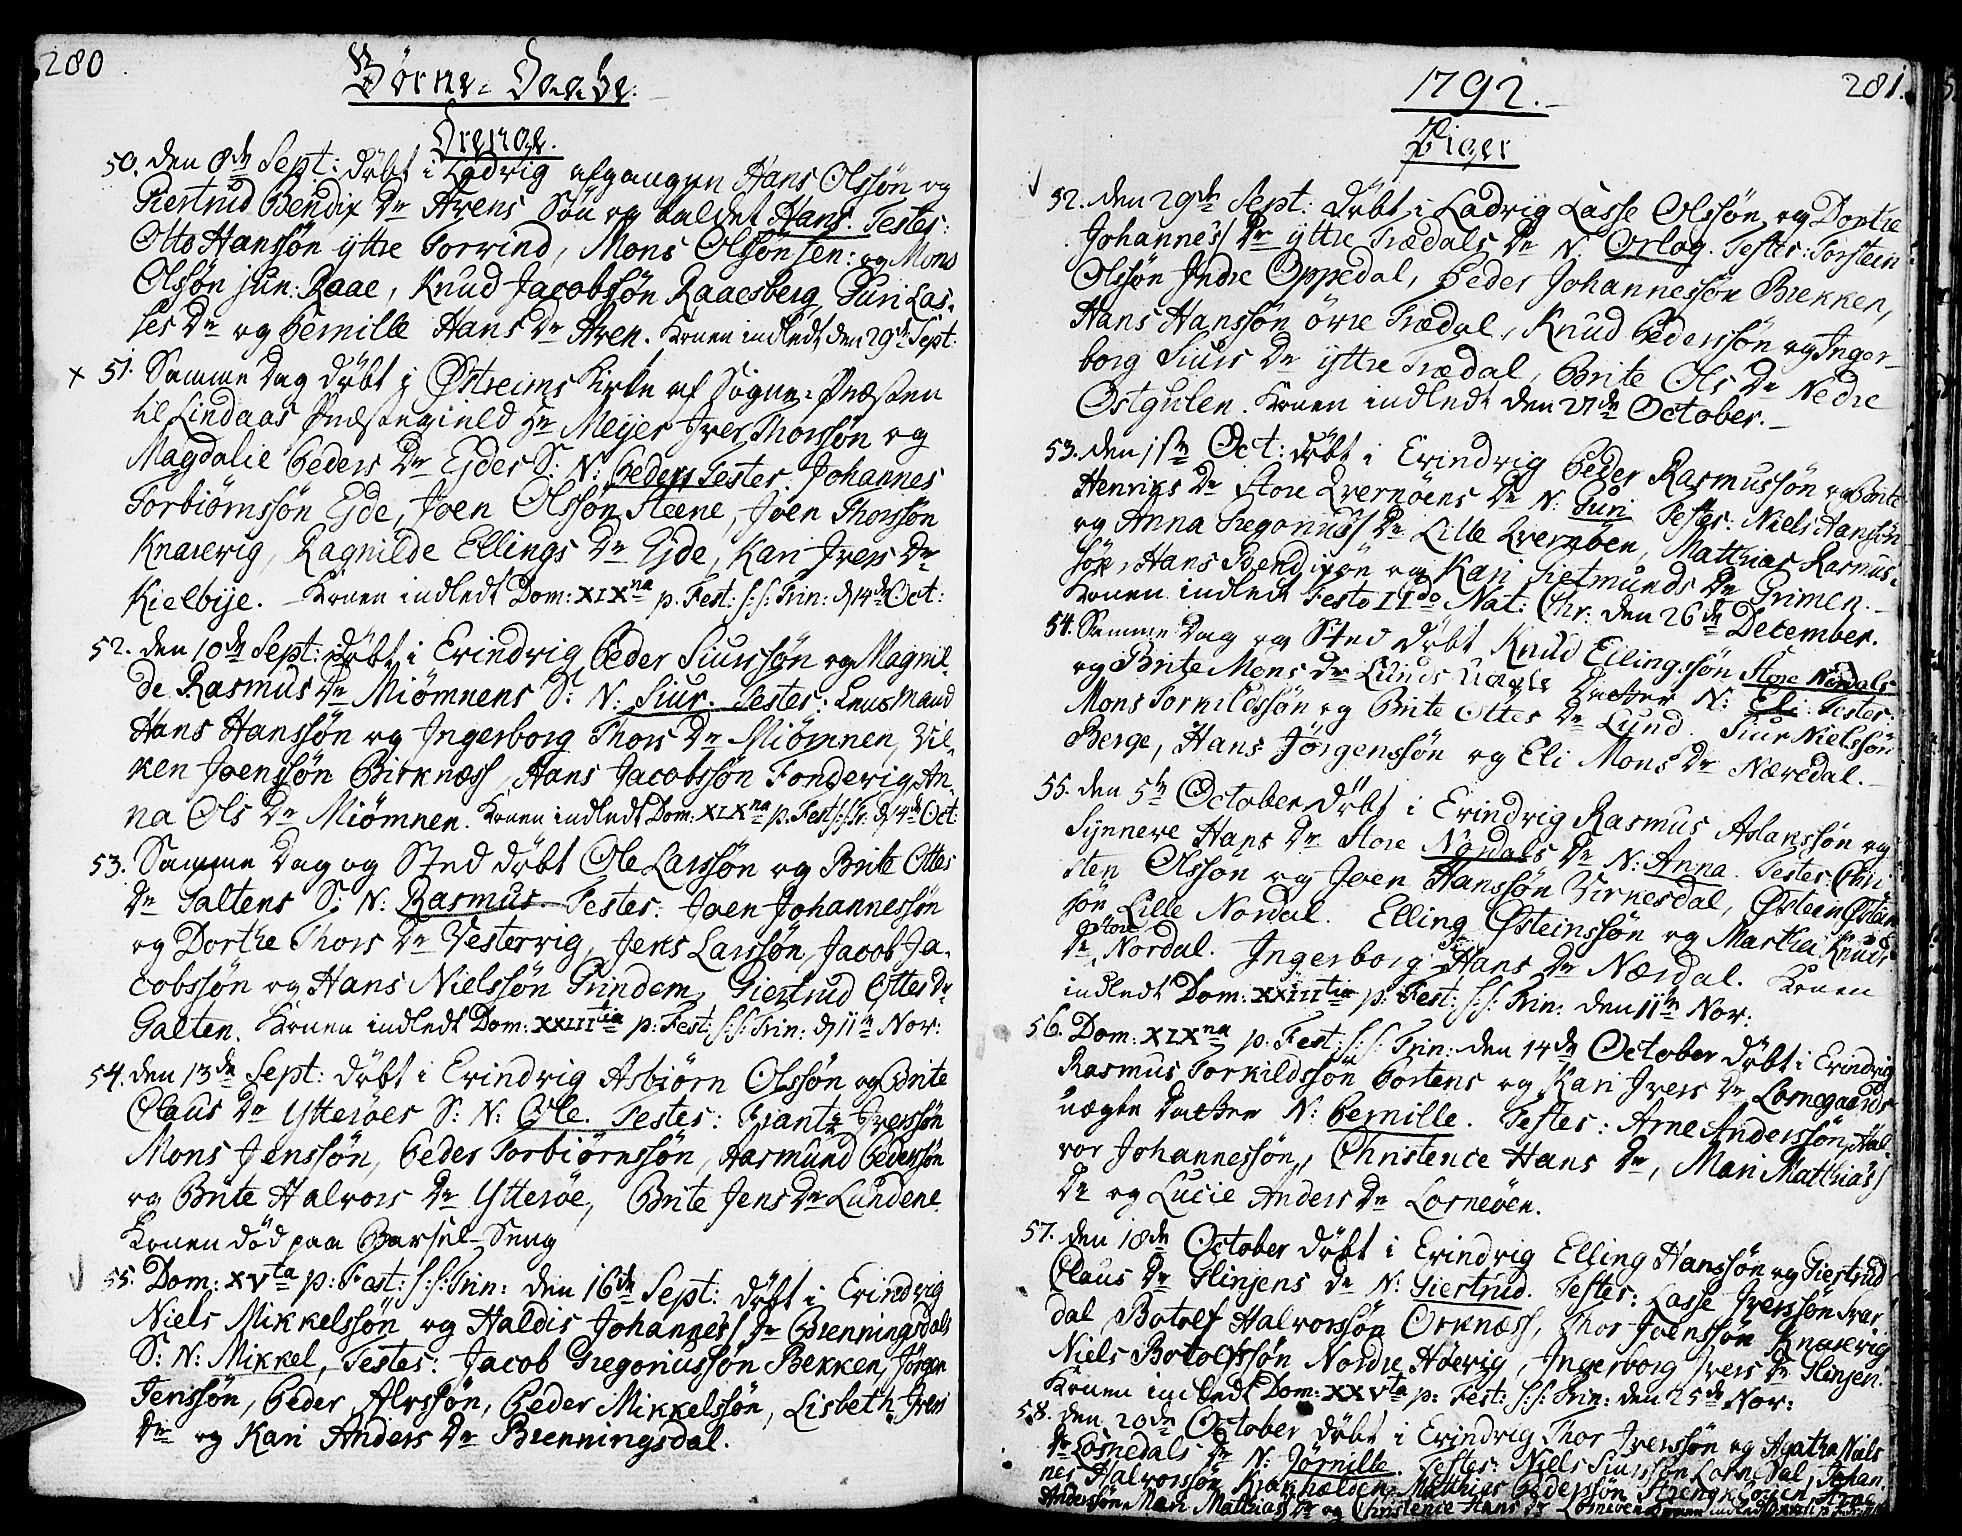 280
Børne-Daabe.
Drenge.
50. den 8de Sept: døbt i Ladvig afgangen Hans Olssøn og
Giertrud Bendix Dr Arens Søn og kaldet Hans. Testes:
Otto Hanssøn yttre Torvind, Mons Olssøn sen: og Mons
Olssøn jun: Raae, Knud Jacobssøn Raaesberg, Guri Las-
ses Dr og Pernille Hans Dr Aren. Konen indledt den 29de Sept.
x 51. Samme Dag døbt i Østreims Kirke af Sogne-Præsten
til Lindaas Præstegield Hr Meyer Iver Thorssøn og
Magdalie Peders Dr Eides S: N: Peder. Testes: Johannes
Torbiørnssøn Eide, Joen Olssøn Steene, Joen Thorssøn
Knarevig, Ragnilde Ellings Dr Eide, Kari Ivers Dr
Kielbye. Konen indledt Dom: XIXna p. Fest: S:S: Trin: d 14de Oct:
52. den 10de Sept: døbt i Evindvig Peder Siurssøn og Magnil-
de Rasmus Dr Miømnens S: N: Siur. Testes: Lensmand
Hans Hanssøn og Ingerborg Thors Dr Miømnen, Vil-
ken Joenssøn Birknæss, Hans Jacobssøn Fondevig, An-
na Ols Dr Miømnen. Konen indledt Dom: XIXna p. Fest S:S: Tr: d 14de Oct:
53. Samme Dag og Sted døbt Ole Larssøn og Brite Ottes
Dr Galtens S: N: Rasmus. Testes: Joen Johannessøn
og Dorthe Thors Dr Vestervig, Jens Larssøn, Jacob Ja-
cobssøn og Hans Nielssøn Grindem, Giertrud Ottes Dr
Galten. Konen indledt Dom: XXIIItia p: Fest: S:S: Trin: d 11te Nor:
54. den 13de Sept: døbt i Evindvig Asbiørn Olssøn og Brite
Claus Dr Ytterøes S: N: Ole. Testes: Frantz Iverssøn
Mons Jenssøn, Peder Torbiørnssøn, Aasmund Pederssøn
og Brite Halvors Dr Ytterøe, Brite Jens Dr Lundene
Konen død paa Barsel-Seng
55. Dom: XVta p: Fest: S:S: Trin: den 16de Sept: døbt i Evindvig
Niels Mikkelssøn og Haldis Johanness Dr Brenningsdals
S: N: Mikkel, Testes: Jacob Gregoriussøn Bekken, Jørgen
Jenssøn, Peder Alvssøn, Peder Mikkelssøn, Lisbeth Ivers
Dr og Kari Anders Dr Brenningsdal.
1792.
281.
Piger
52. den 29de Sept: døbt i Ladvig Lasse Olssøn og Dorthe
Johanness Dr yttre Trædals Dr N: Orlog. Testes: Torstein
Olssøn Indre Oppedal, Peder Johannessøn Brekken,
Hans Hanssøn øvre Trædal, Knud Pederssøn og Inger-
borg Siurs Dr yttre Trædal, Brite Ols Dr Nedre
Ostgulen. Konen indledt den 27de October.
53. den 1ste Oct: døbt i Evindvig Peder Rasmussøn og Brite
Henrigs Dr store Qvernøens Dr N: Guri Testes: Niels Hanssøn
og Anna Gregoriuss Dr Lille Qvernøen, Matthias Rasmus-
søn, Hans Bendixøn og Kari Gietmunds Dr Grimen.
Konen indledt Festo IIdo Nat: Chr: den 26de December.
54. Samme Dag og Sted døbt Knud Ellingssøn Store Nordals
og Brite Mons Dr Lunds uægte Datter N: Eli. Testes:
Mons Torkildssøn og Brite Ottes Dr Lund. Siur Nielssøn
Berge, Hans Jørgenssøn og Eli Mons Dr Næredal.
55. den 5te October døbt i Evindvig Rasmus Aslakssøn og
Synneve Hans Dr Store Nordals Dr N: Anna. Testes: Chri-
sten Olsson og Joen Hanssøn Virkesdal, Østein Østein-
søn Lille Nordal. Elling Østeinssøn og Marthe Knuds
Dr Store Nordal. Ingerborg Hans Dr Nærdal. Konen
indledt Dom: XXIIItia p: Fest: S:S: Trin: den 11te Nor:
56. Dom: XIXna p: Fest: S:S: Trin: den 14de October døbt i Evindvig
Rasmus Torkildssøn Portens og Kari Ivers Dr Losnegaards
uægte Datter N: Pernille. Testes: Arne Anderssøn, Hal-
vor Johannessøn, Christence Hans Dr, Mari Matthiass
Dr og Lucie Anders Dr Losneøen.
57. den 18de October døbt i Evindvig Elling Hanssøn og Giertrud
Claus Dr Slinjens Dr N: Giertrud. Testes: Lasse Iverssøn Svar-
dal, Botolf Halvorssøn Orknæss, Thor Joenssøn Knarevig
Niels Botolfssøn Nordre Høevig, Ingerborg Ivers Dr Slinjen.
Konen indledt Dom: XXVta p: Fest: S:S: Trin: den 25de Nor:
58. den 20de October døbt i Evindvig Thor Iverssøn og Agatha Niels
Dr Losnedals Dr N: Jørnille. Testes: Niels Siurssøn Losnedal, Johan-
nes Halvorssøn Matthias Pederssøn Arne
Anderssøn, Mari Matthias Dr og Christence Hans Dr Losneøen